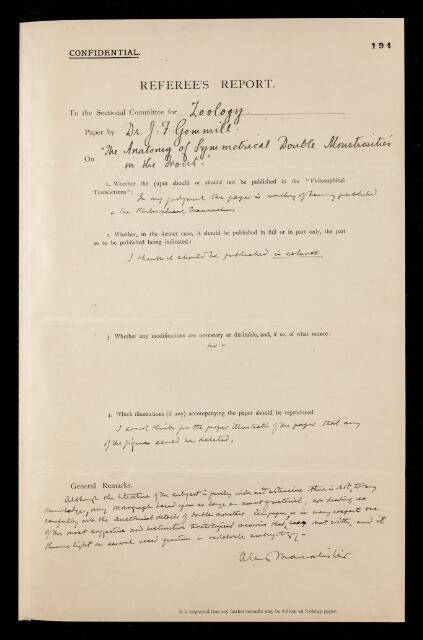 CONFIDENTIAL.
194
REFEREE'S REPORT.
To the Sectional Committee for Zoology
Paper by Dr. J. F. Gemmill.
On "The Anatomy of Symmetrical Double Monstrosities
in the Trout".
1. Whether the paper should or should not be published in the "Philosophical
Transactions":
In my judgment the paper is worthy of being published
in the Philosophical Transactions
2. Whether, in the former case, it should be published in full or in part only, the part
so to be published being indicated:
I think it should be published in extenso
3. Whether any modifications are necessary or desirable, and, if so, of what nature:
4. Which illustrations (if any) accompanying the paper should be reproduced
I do not think for the proper illustration of the paper that any
of the figures should be deleted.
General Remarks.
Although the literature of the subject is fairly wide and extensive there is not to my
knowledge, any monograph based upon so large an amount of material, nor dealing so
carefully with the anatomical details of double monsters. The paper is in many respects one
of the most suggestive and instructive teratological memoirs that I have met with, and it
throws light on several vexed questions in vertebrate embryology
Alex Macalister
It is requested that any further remarks may be written on foolscap paper.